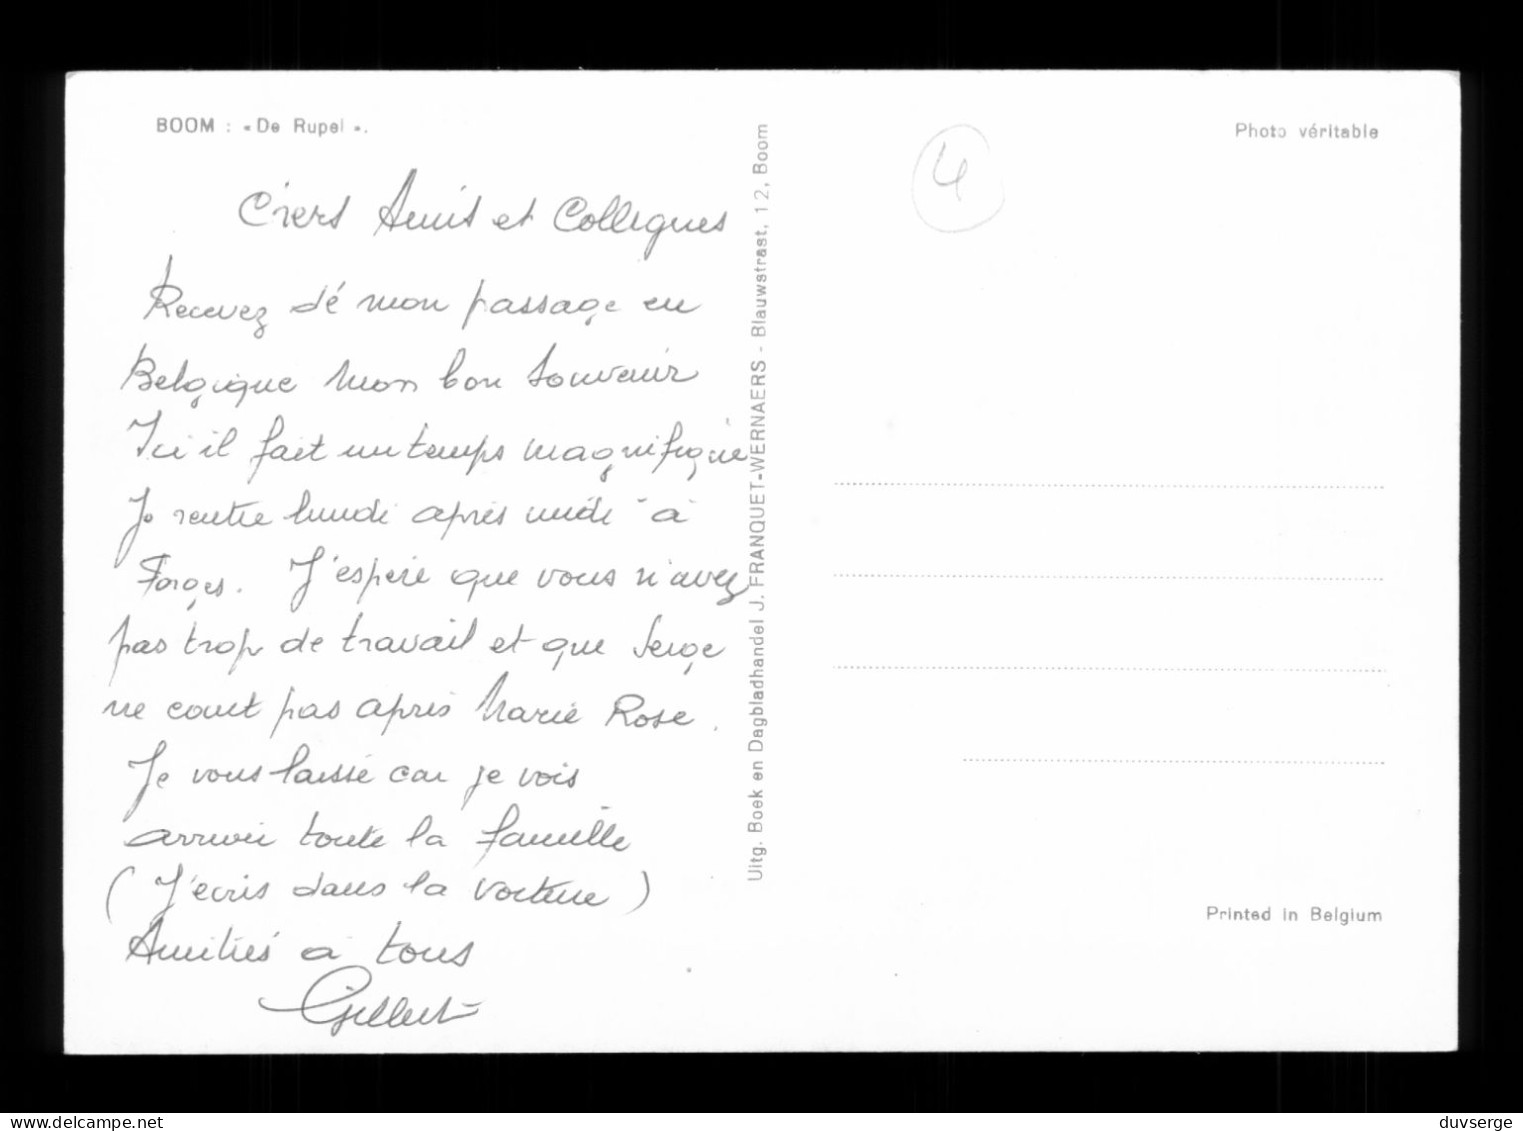 BOOM : « De Rupel ».
Photo véritable
4
Chers Amis et Collègues
Recevez dé mon passage en
Belgique mon bon souvenir
Ici il fait un temps magnifique
Je rentre lundi après midi à
Forges. J'espère que vous n'avez
pas trop de travail et que Serge
ne court pas après Marie Rose.
Je vous laisse car je vois
arriver toute la famille
(J'écris dans la voiture)
Amitiés à tous
Gilbert
Uitg. Boek en Dagbladhandel J. FRANQUET-WERNAERS - Blauwstraat, 12, Boom
Printed in Belgium
www.delcampe.net
duvserge